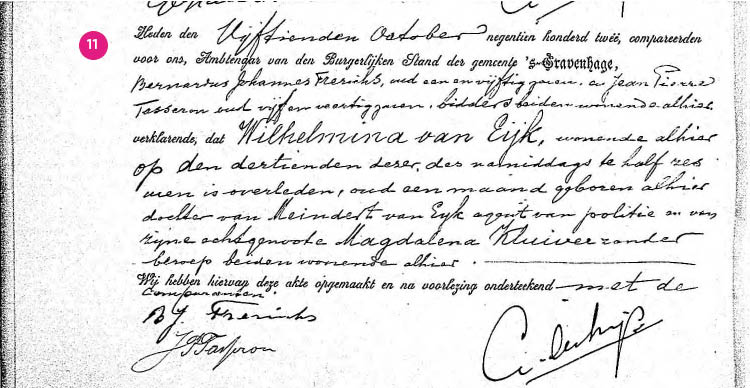 11
Heden den Vijftienden October negentien honderd twee, compareerden
voor ons, Ambtenaar van den Burgerlijken Stand der gemeente 's-Gravenhage,
Bernardus Johannes Frerichs, oud een en vijftig jaren, en Jean Pierre
Tasseron oud vijf en veertig jaren, bidders beiden wonende alhier
verklarende, dat Wilhelmina van Eijk, wonende alhier
op den dertienden dezer, des namiddags te half zes
uren is overleden, oud een maand geboren alhier
dochter van Meindert van Eyk agent van politie en van
zijne echtgenoote Magdalena Kluiver zonder
beroep beiden wonende alhier.
Wij hebben hiervan deze akte opgemaakt en na voorlezing onderteekend met de
Comparanten.
B J Frerichs
J P Tasseron